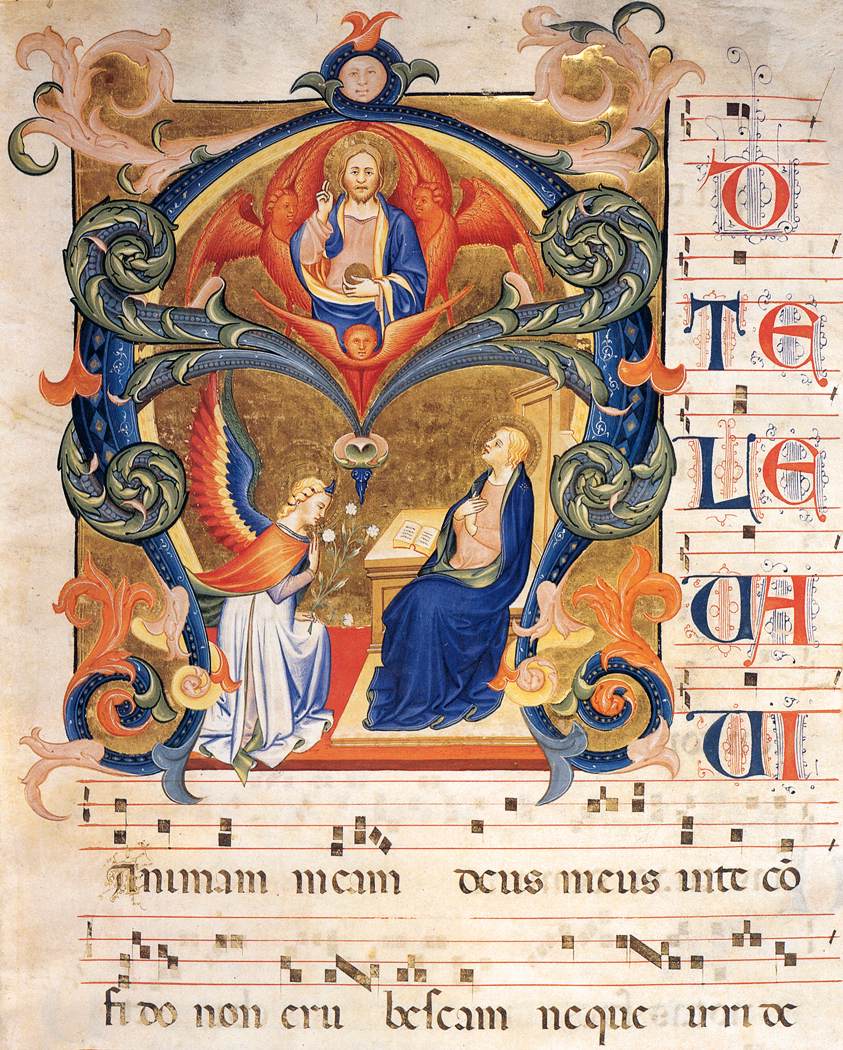 AD
TE
LE
UA
UI
Animam meam deus meus inte cō
fi do non eru beſcam neque irri de